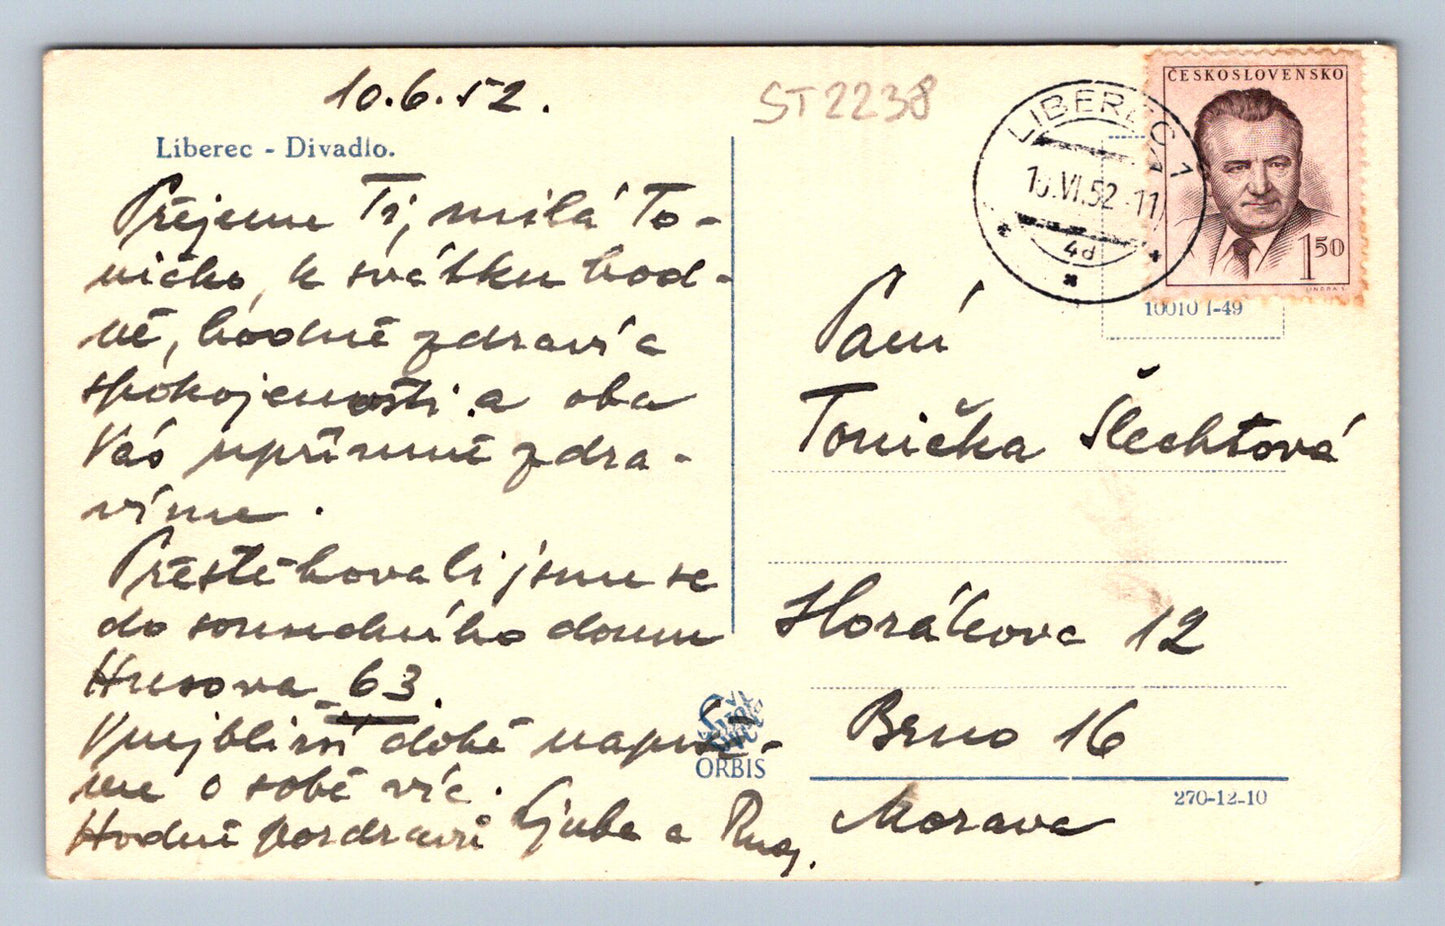 10.6.52.
ST2238
Liberec - Divadlo.
Přejeme Ti, milá To-
ničko, k svátku hod-
ně, hodně zdraví a
spokojenosti a oba
Vás upřímně zdra-
víme.
Přestěhovali jsme se
do sousedního domu
Husova 63.
V nejbližší době napíše-
me o sobě víc.
Hodně pozdravů Ljuba a
LIBEREC 1
.VI.52-11
4d
ČESKOSLOVENSKO
1 50
10010 I-49
Paní
Tonička Šlechtová
Horákova 12
Brno 16
Morava
ORBIS
270-12-10